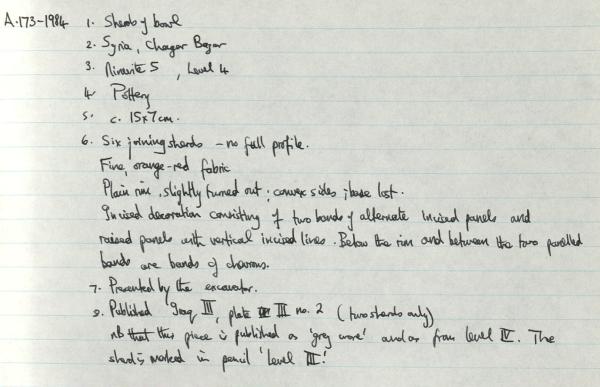 A.173-1984 1. Sherds of bowl
2. Syria, Chagar Bazar
3. Ninevite 5, Level 4
4. Pottery
5. c. 15x7cm.
6. Six joining sherds - no full profile.
Fine, orange-red fabric
Plain rim, slightly turned out; convex sides; base lost.
Incised decoration consisting of two bands of alternate incised panels and
raised panels with vertical incised lines. Below the rim and between the two panelled
bands are bands of chevrons.
7. Presented by the excavator.
8. Published 'Iraq III, plate III no. 2 (two sherds only)
nB that this piece is published as 'grey ware' and as from level IV. The
sherd is marked in pencil 'level III'.